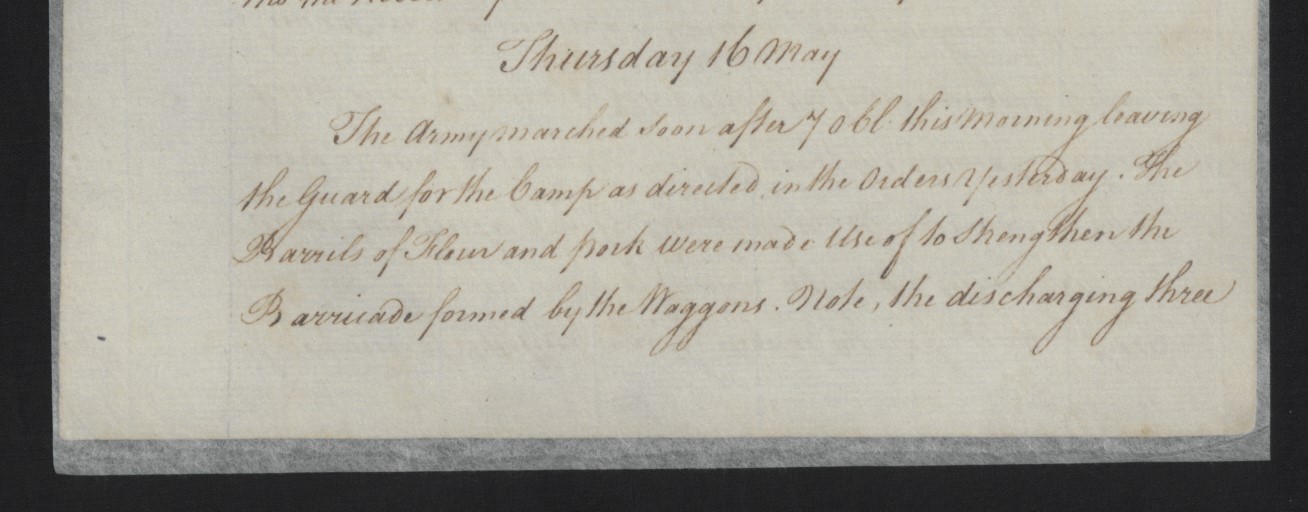 Thursday 16 May
The Army marched soon after 7 o Cl. this Morning leaving
the Guard for the Camp as directed in the Orders Yesterday. The
Barrils of Flour and pork were made Use of to Strengthen the
Barricade formed by the Waggons. Note, the discharging three